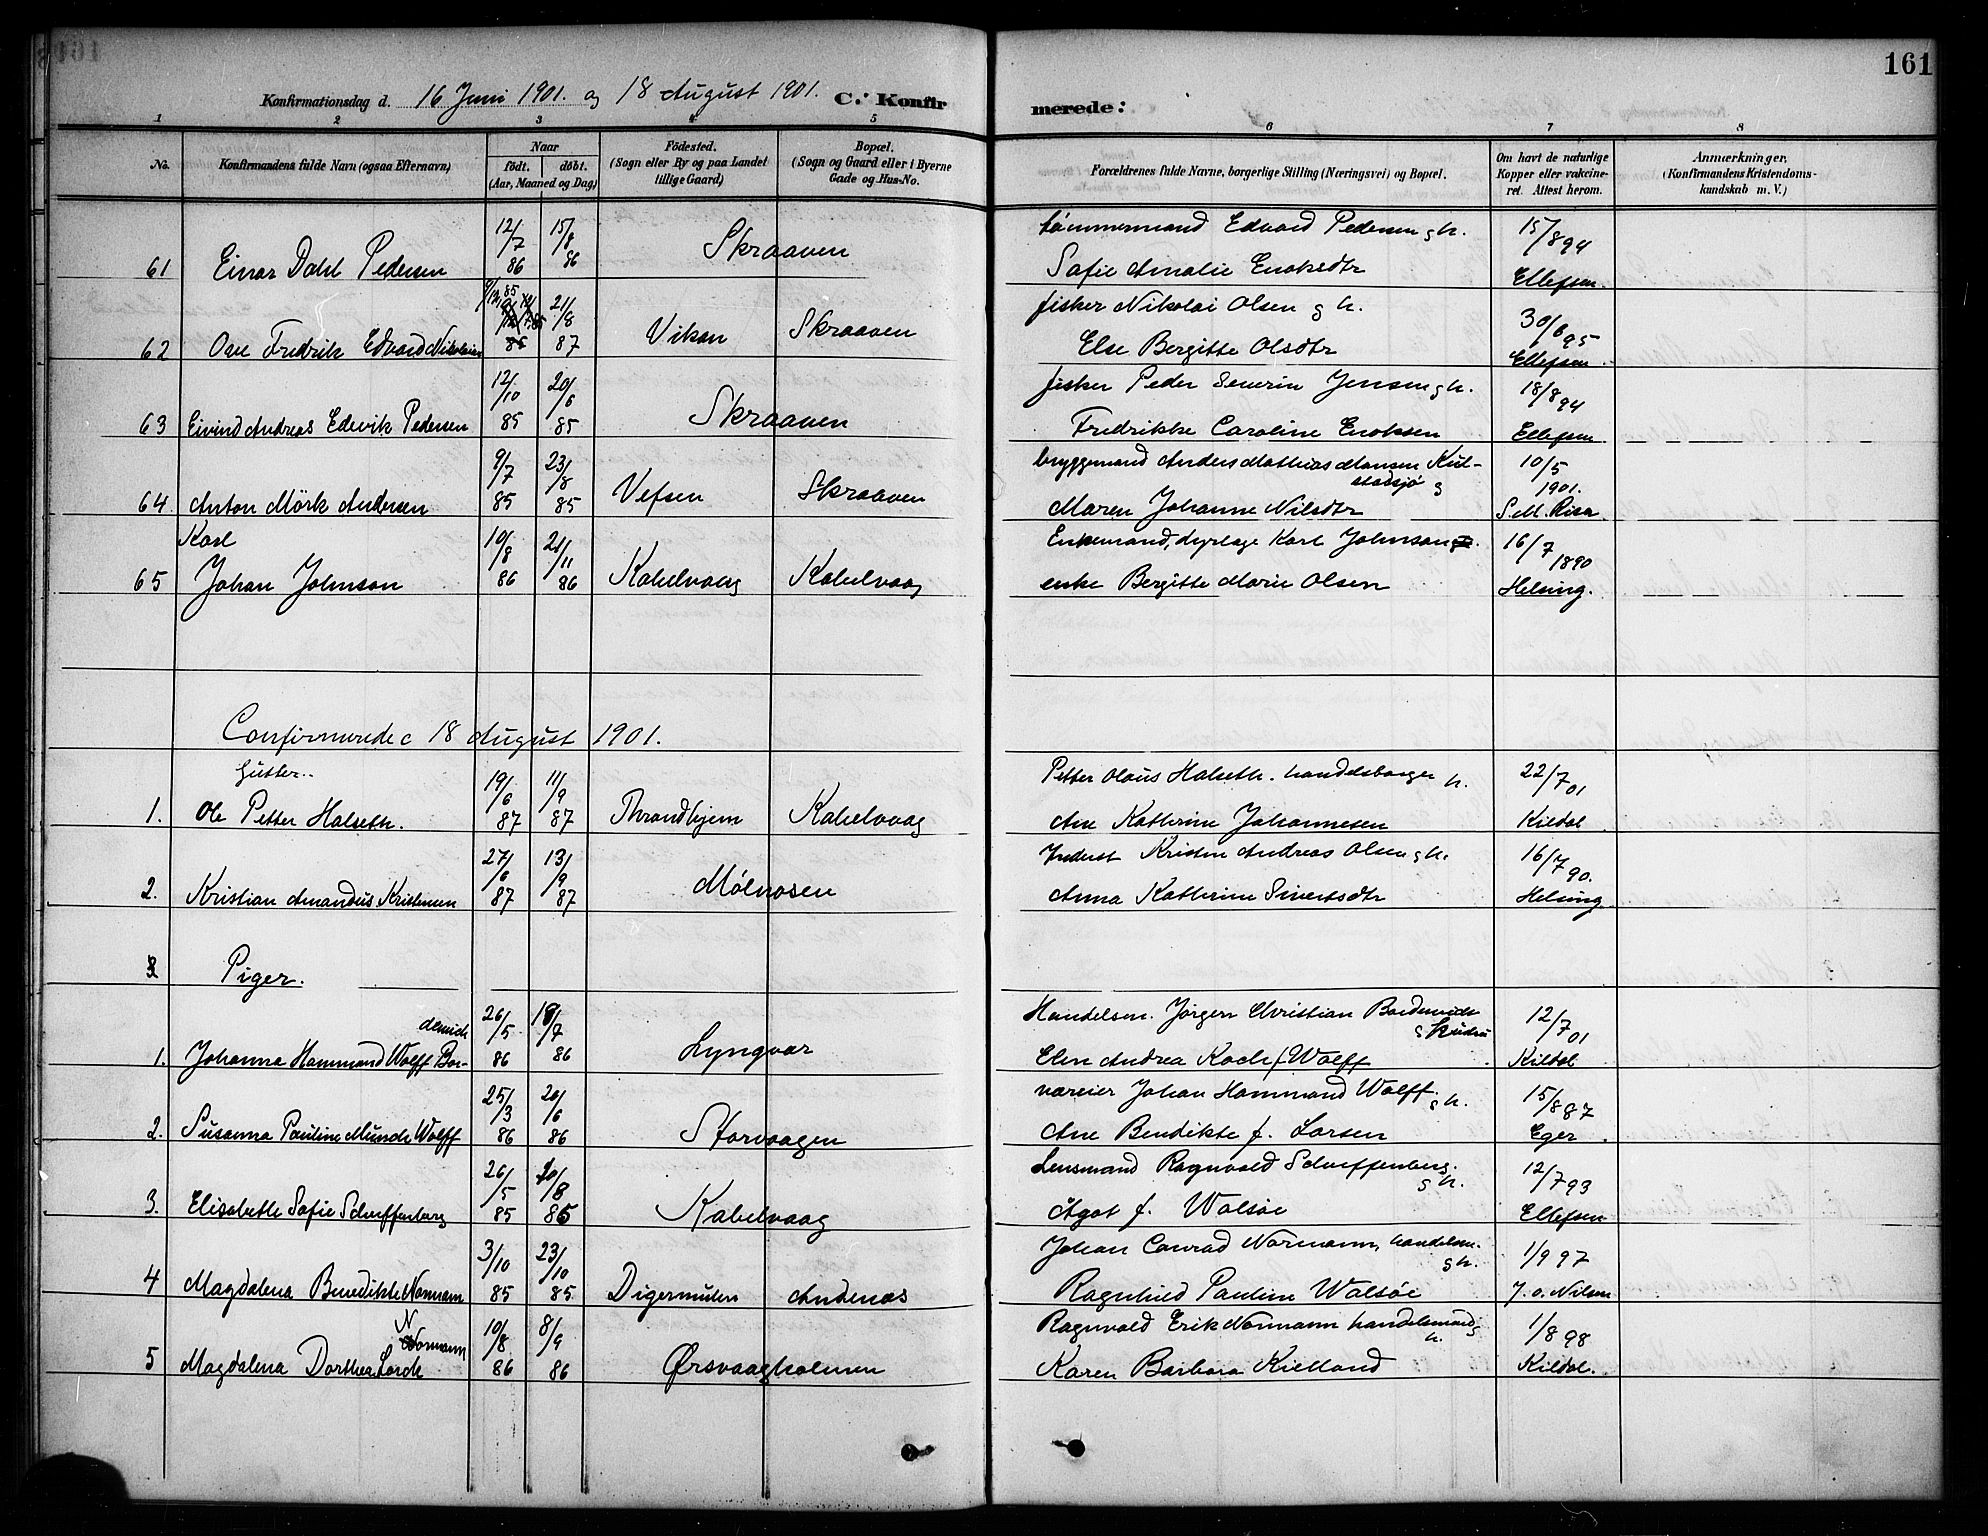 161
Konfirmationsdag d. 16 Juni 1901. og 18 August 1901. C.: Konfirmerede:
1 2 3 4 5 6 7 8
No. Konfirmandens fulde Navn (ogsaa Efternavn) Naar født. døbt. (Aar, Maaned og Dag) Fødested. (Sogn eller By og paa Landet tillige Gaard) Bopæl. (Sogn og Gaard eller i Byerne Gade og Hus-No. Forældrenes fulde Navne, borgerlige Stilling (Næringsvei) og Bopæl. Om havt de naturlige Kopper eller vakcineret. Attest herom. Anmærkninger. (Konfirmandens Kristendomskundskab m. V.)
12/7 15/8 tømmermand Edvard Pedersen g h. 15/8 94
61 Einar Dahl Pedersen 86 86 Skraaven Sofie Amalie Enoksdtr Ellefsen.
9/12 85 21/8 fisker Nikolai Olsen g h. 30/6 95
62 Ove Fredrik Edvard Nikolaisen 87 Vikan Skraaven Else Bergitte Olsdtr Ellefsen.
12/10 20/6 fisker Peder Severin Jensen g h. 18/8 94
63 Eivind Andreas Edevik Pedersen 85 85 Skraaven Fredrikke Caroline Enoksen Ellefsen.
9/7 23/8 bryggemand Anders Mathias Hansen Kulstadsjø g 10/5 1901.
64. Anton Mörk Andersen 85 85 Vefsen Skraaven Maren Johanne Nilsdtr S.M. Risa
Karl 10/8 21/11 Enkemand, dyrlæge Karl Johnson 16/7 1890
65 Johan Johnson 86 86 Kabelvaag Kabelvaag enke Bergitte Marie Olsen Helsing.
Confirmerede 18 August 1901.
Gutter.. 19/6 11/9 Petter Olaus Halseth. handelsborger h. 22/7 01
1. Ole Petter Halseth. 87 87 Throndhjem Kabelvaag Ane Kathrine Johannesen Kildal
27/6 13/9 Inderst Kristen Andreas Olsen g h. 16/7 90.
2. Kristian Amandus Kristensen 87 87 Mølnosen Anna Kathrine Sivertsdtr Helsing.
Piger.
dewick 26/5 18/7 Handelsm. Jörgen Christian Bordewick g hustru 12/7 01
1. Johanna Hammond Wolff Bor- 86 86 Lyngvær Elen Andrea Koch f Wolff Kildal
25/3 20/6 væreier Johan Hammond Wolff. g h. 15/8 87
2. Susanna Pauline Munch Wolff 86 86 Storvaagen Ane Bendikte f. Larsen Eger.
26/5 20/8 Lensmand Ragnvald Scheffenberg. g h. 12/7 93
3. Elisabeth Sofie Scheffenberg 85 85 Kabelvaag Ågot f. Walsöe Ellefsen
3/10 23/10 Johan Conrad Normann, handelsm. g h. 1/9 97
4 Magdalena Benedikte Normann 85 85. Digermulen Andenæs Ragnhild Pauline Walsöe J.O. Nilsen
Normann 10/8 8/9 Ragnvald Erik Normann handelsmand g h. 1/8 98
5 Magdalena Dorthea Lorck 86 86 Ørsvaagholmen Karen Barbara Kielland Kildal.